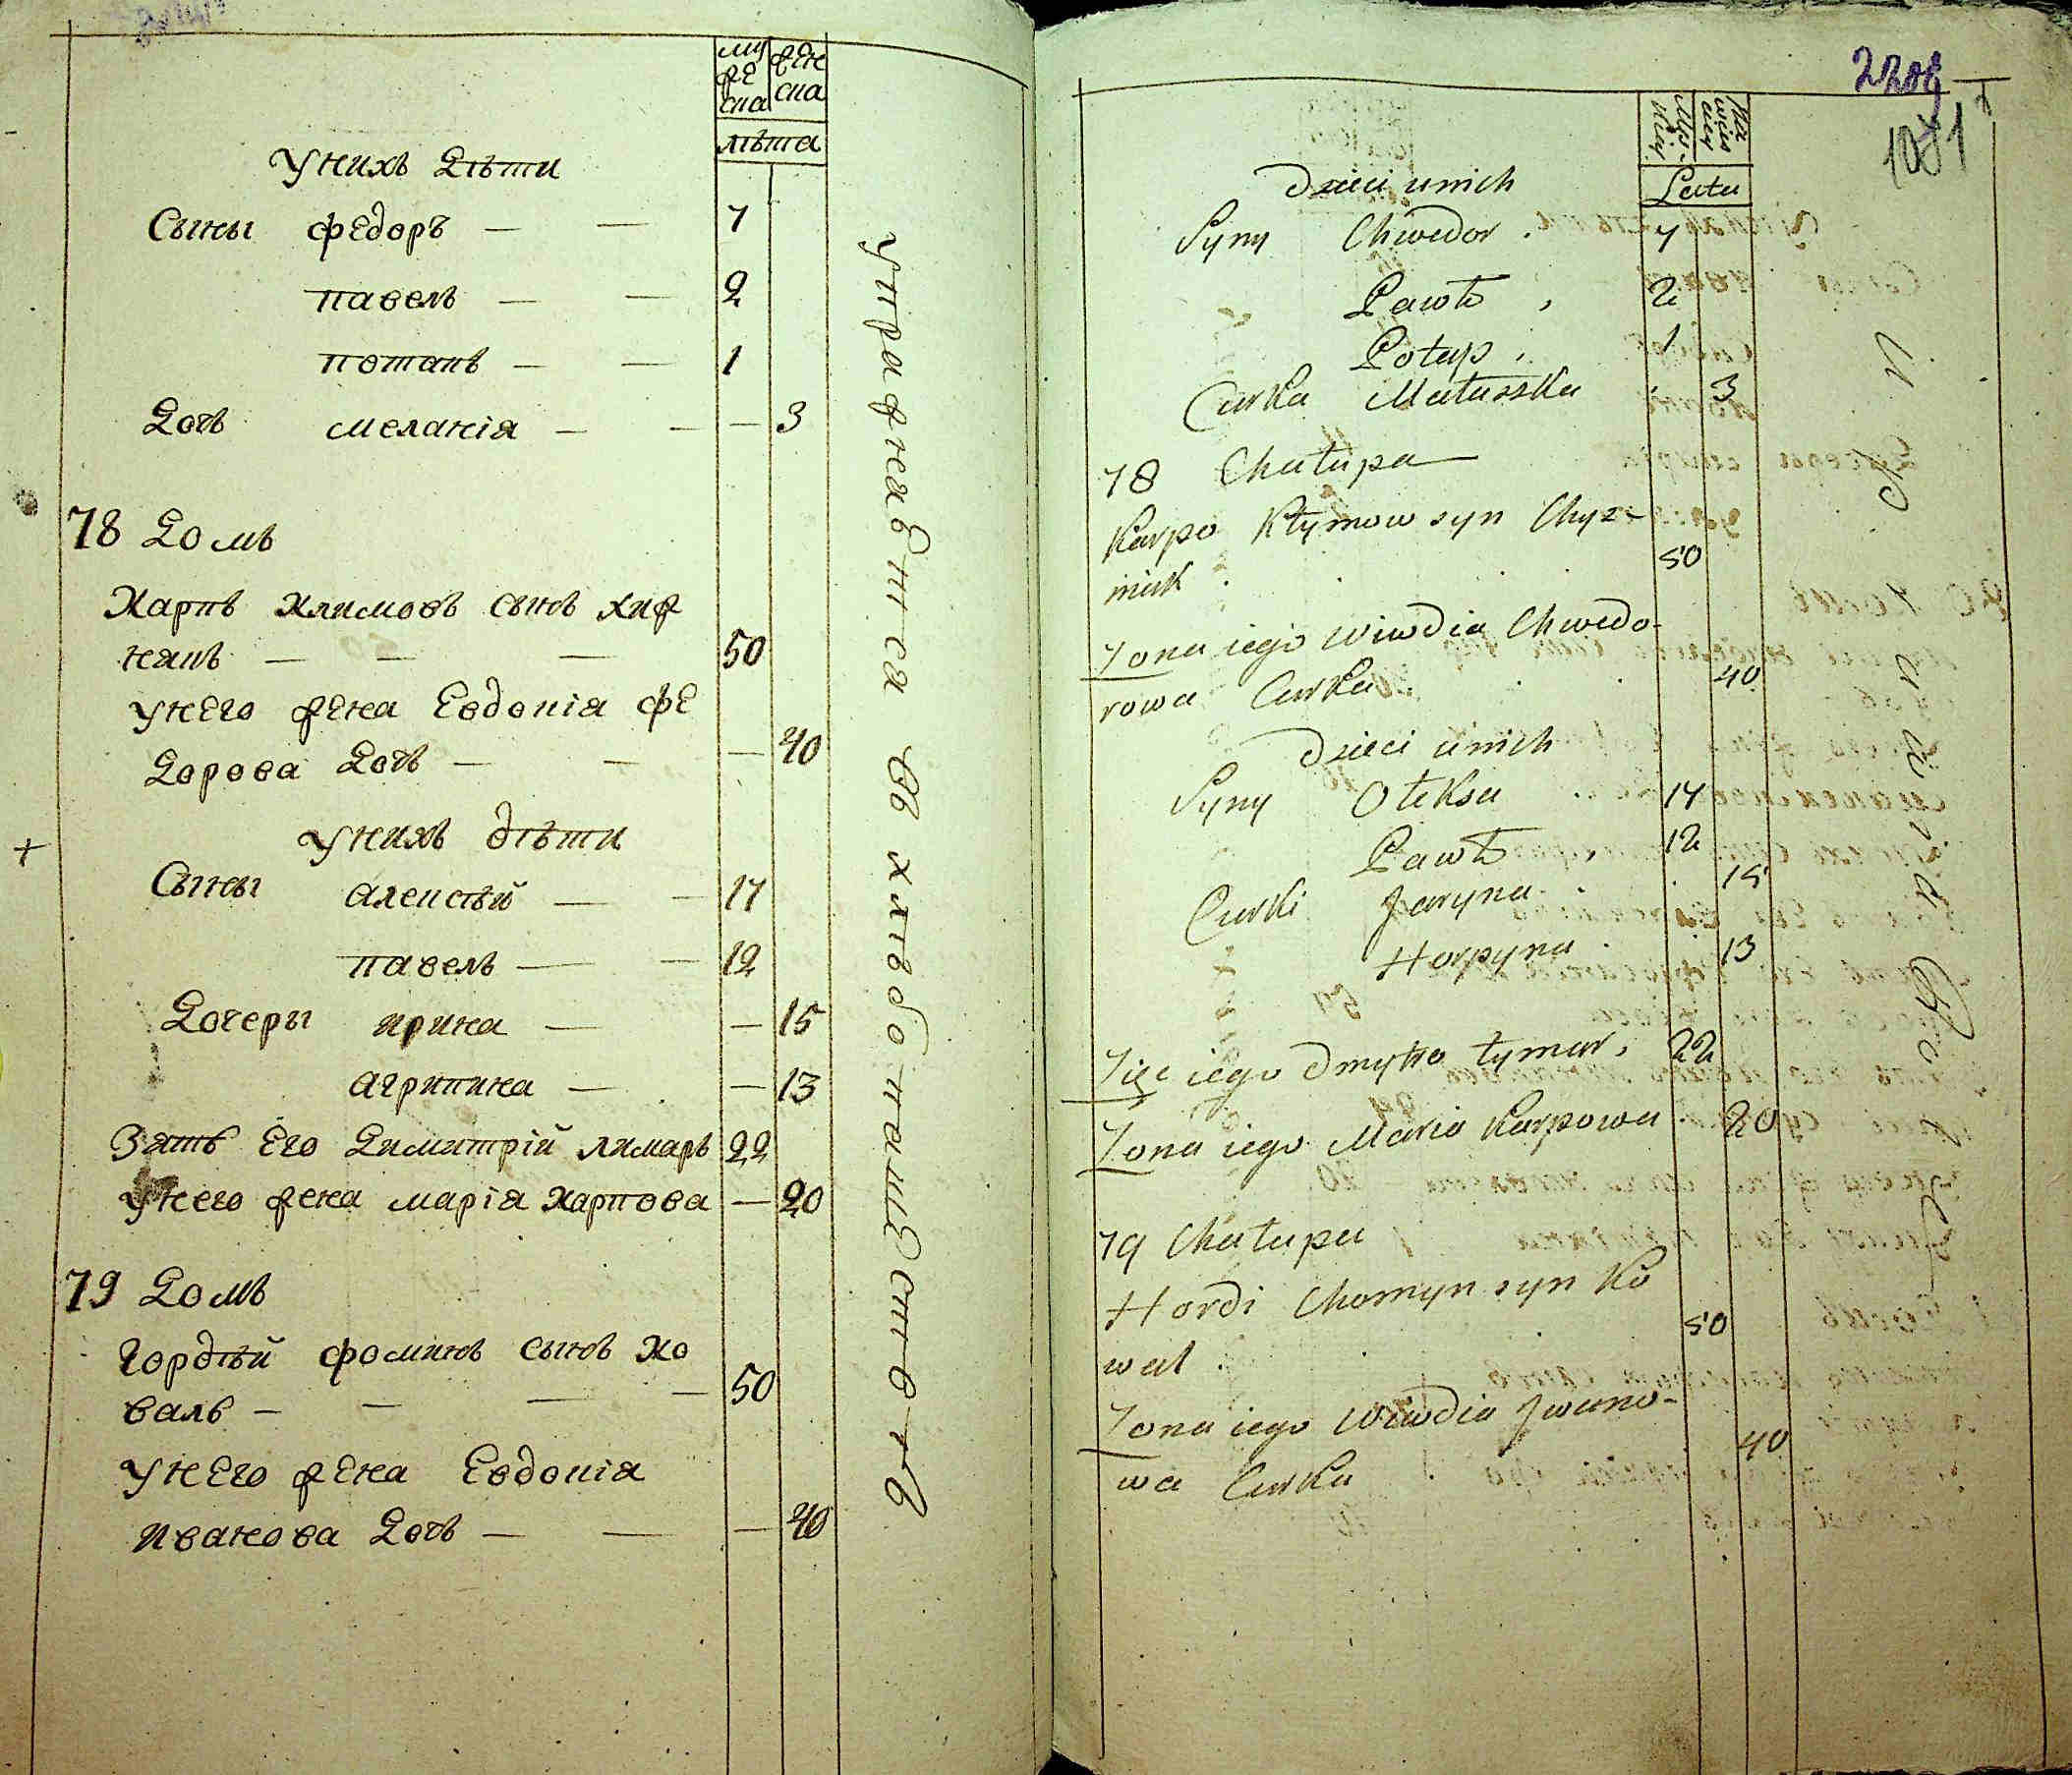 муже
ска
женска
лѣта
У нихъ Дѣти
Сыны Федоръ — — 7
Павелъ — — 2
Потапъ — — 1
Дочь Меланія — — — 3
78 Домъ
Карпъ Климовъ сынъ Хиж
някъ — — — 50
У него жена Евдокія Фе
дорова Дочь — — — 40
У нихъ дѣти
Сыны Алексѣй — — 17
Павелъ — — 12
Дочеры Ирина — — 15
Агрипина — — 13
Зять Его Димитрій Лимаръ 22
У него жена Марія Карпова — 20
79 Домъ
Гордѣй Фоминъ сынъ Ко
валь — — — — 50
У него жена Евдокія
Иванова Дочь — — — 40
упражняѣтся въ хлѣбопашествѣ
220
1081
Męz-
kiey
Lata
Dzieci u nich
Syny Chwedor . 7
Pawło , 2
Potap . 1
Curka Małaszka . 3
78 Chałupa
Karpo Kłymow syn Chyz-
niak . 50
Zona iego Wiwdia Chwedo-
rowa Curka . 40
Dzieci u nich
Syny Ołeksa . 17
Pawło , 12
Curki Jaryna . 15
Horpyna . 13
Zięc iego Dmytro Łymar , 22
Zona iego Maria Karpowa 20
79 Chałupa
Hordi Chomyn syn Ko
wal . 50
Zona iego Wiwdia Jwano-
wa Curka 40